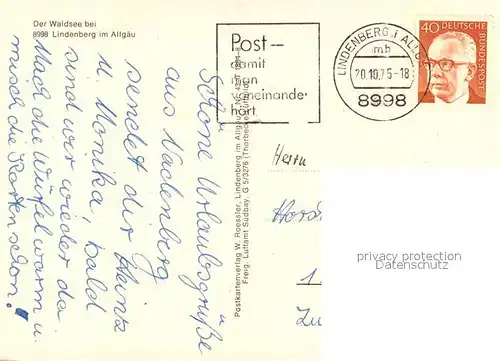 Der Waldsee bei
8998 Lindenberg im Allgäu
Post –
damit
man
voneinander
hört
LINDENBERG i ALLGÄU
mb
20.10.75-18
8998
40 DEUTSCHE
BUNDESPOST
Schöne Urlaubsgrüße
aus Nadenberg
sendet dir Heinz
u Monika, bald
sind wir wieder da
Mach die Würfel warm u.
misch die Karten schon!
Postkartenverlag W. Roessler, Lindenberg im Allgäu
Freig. Luftamt Südbay. G 5/3276 (Thorbecke-Luftbild)
Herrn
privacy protection
Datenschutz